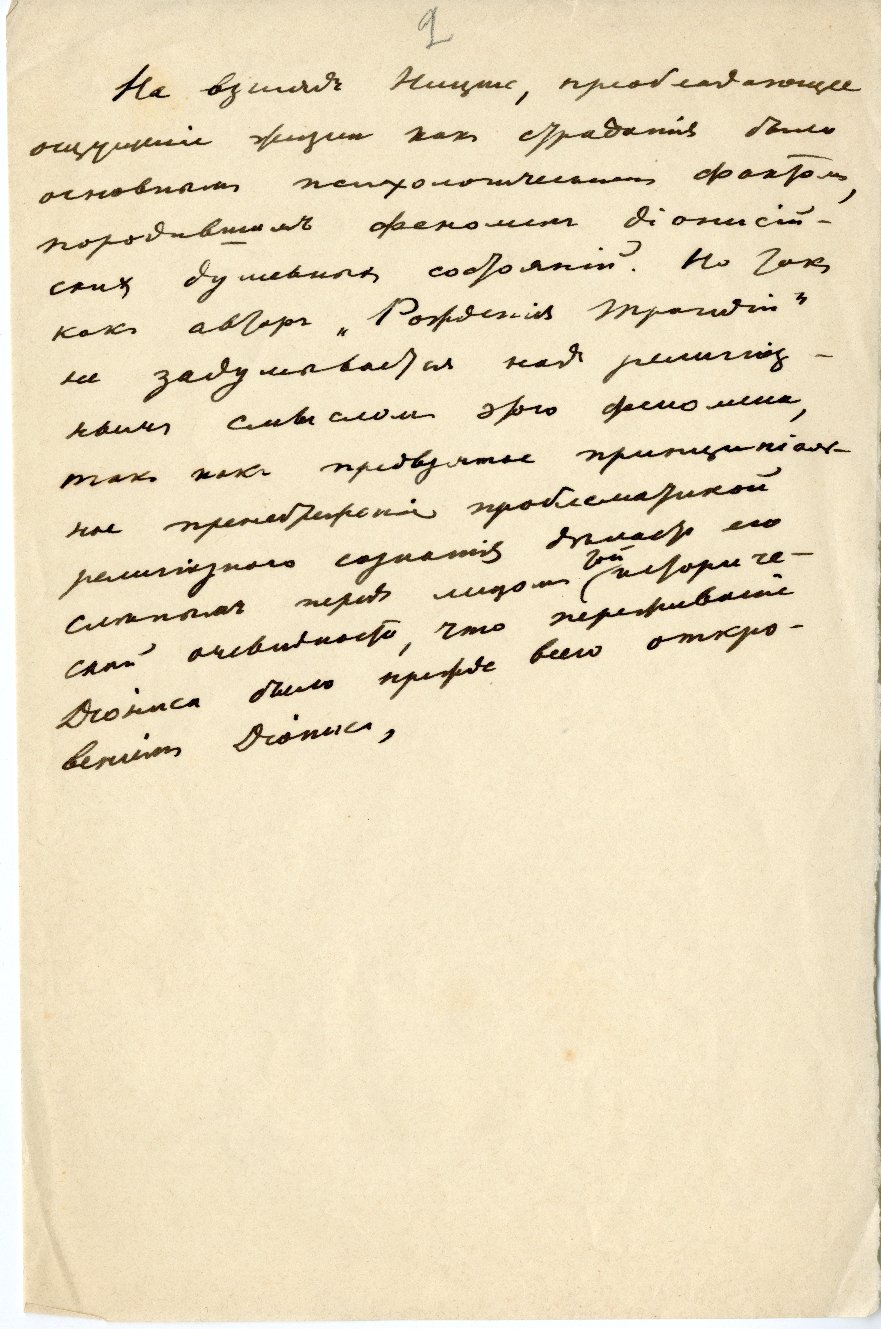 2
На взглядъ Ницше, преобладающее
ощущеніе жизни какъ страданія было
основнымъ психологическимъ фактомъ,
породившимъ феноменъ діонисій-
скихъ душевныхъ состояній. Но такъ
какъ авторъ „Рожденія Трагедіи"
не задумывается надъ религіоз-
нымъ смысломъ этого феномена,
такъ какъ предвзятое принципіаль-
ное пренебреженіе проблематикой
религіознаго сознанія дѣлаетъ его
слѣпымъ передъ лицомъ той историче-
ской очевидности, что переживаніе
Діониса было прежде всего откро-
веніемъ Діониса,